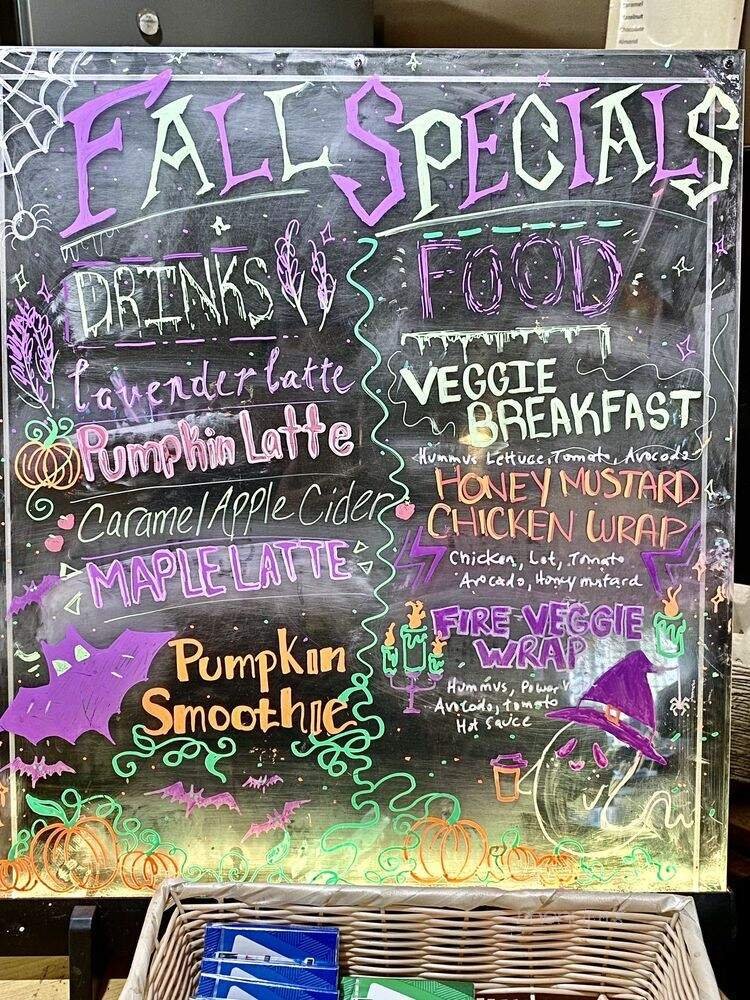 FALL SPECIALS
DRINKS
Lavender latte
Pumpkin Latte
Caramel Apple Cider
MAPLE LATTE
Pumpkin
Smoothie
FOOD
VEGGIE
BREAKFAST
Hummus Lettuce, Tomato, Avocado
HONEY MUSTARD
CHICKEN WRAP
Chicken, Let, Tomato
Avocado, Honey mustard
FIRE VEGGIE
WRAP
Hummus, Power
Avocado, tomato
Hot Sauce
Caramel
Hazelnut
Chocolate
Almond